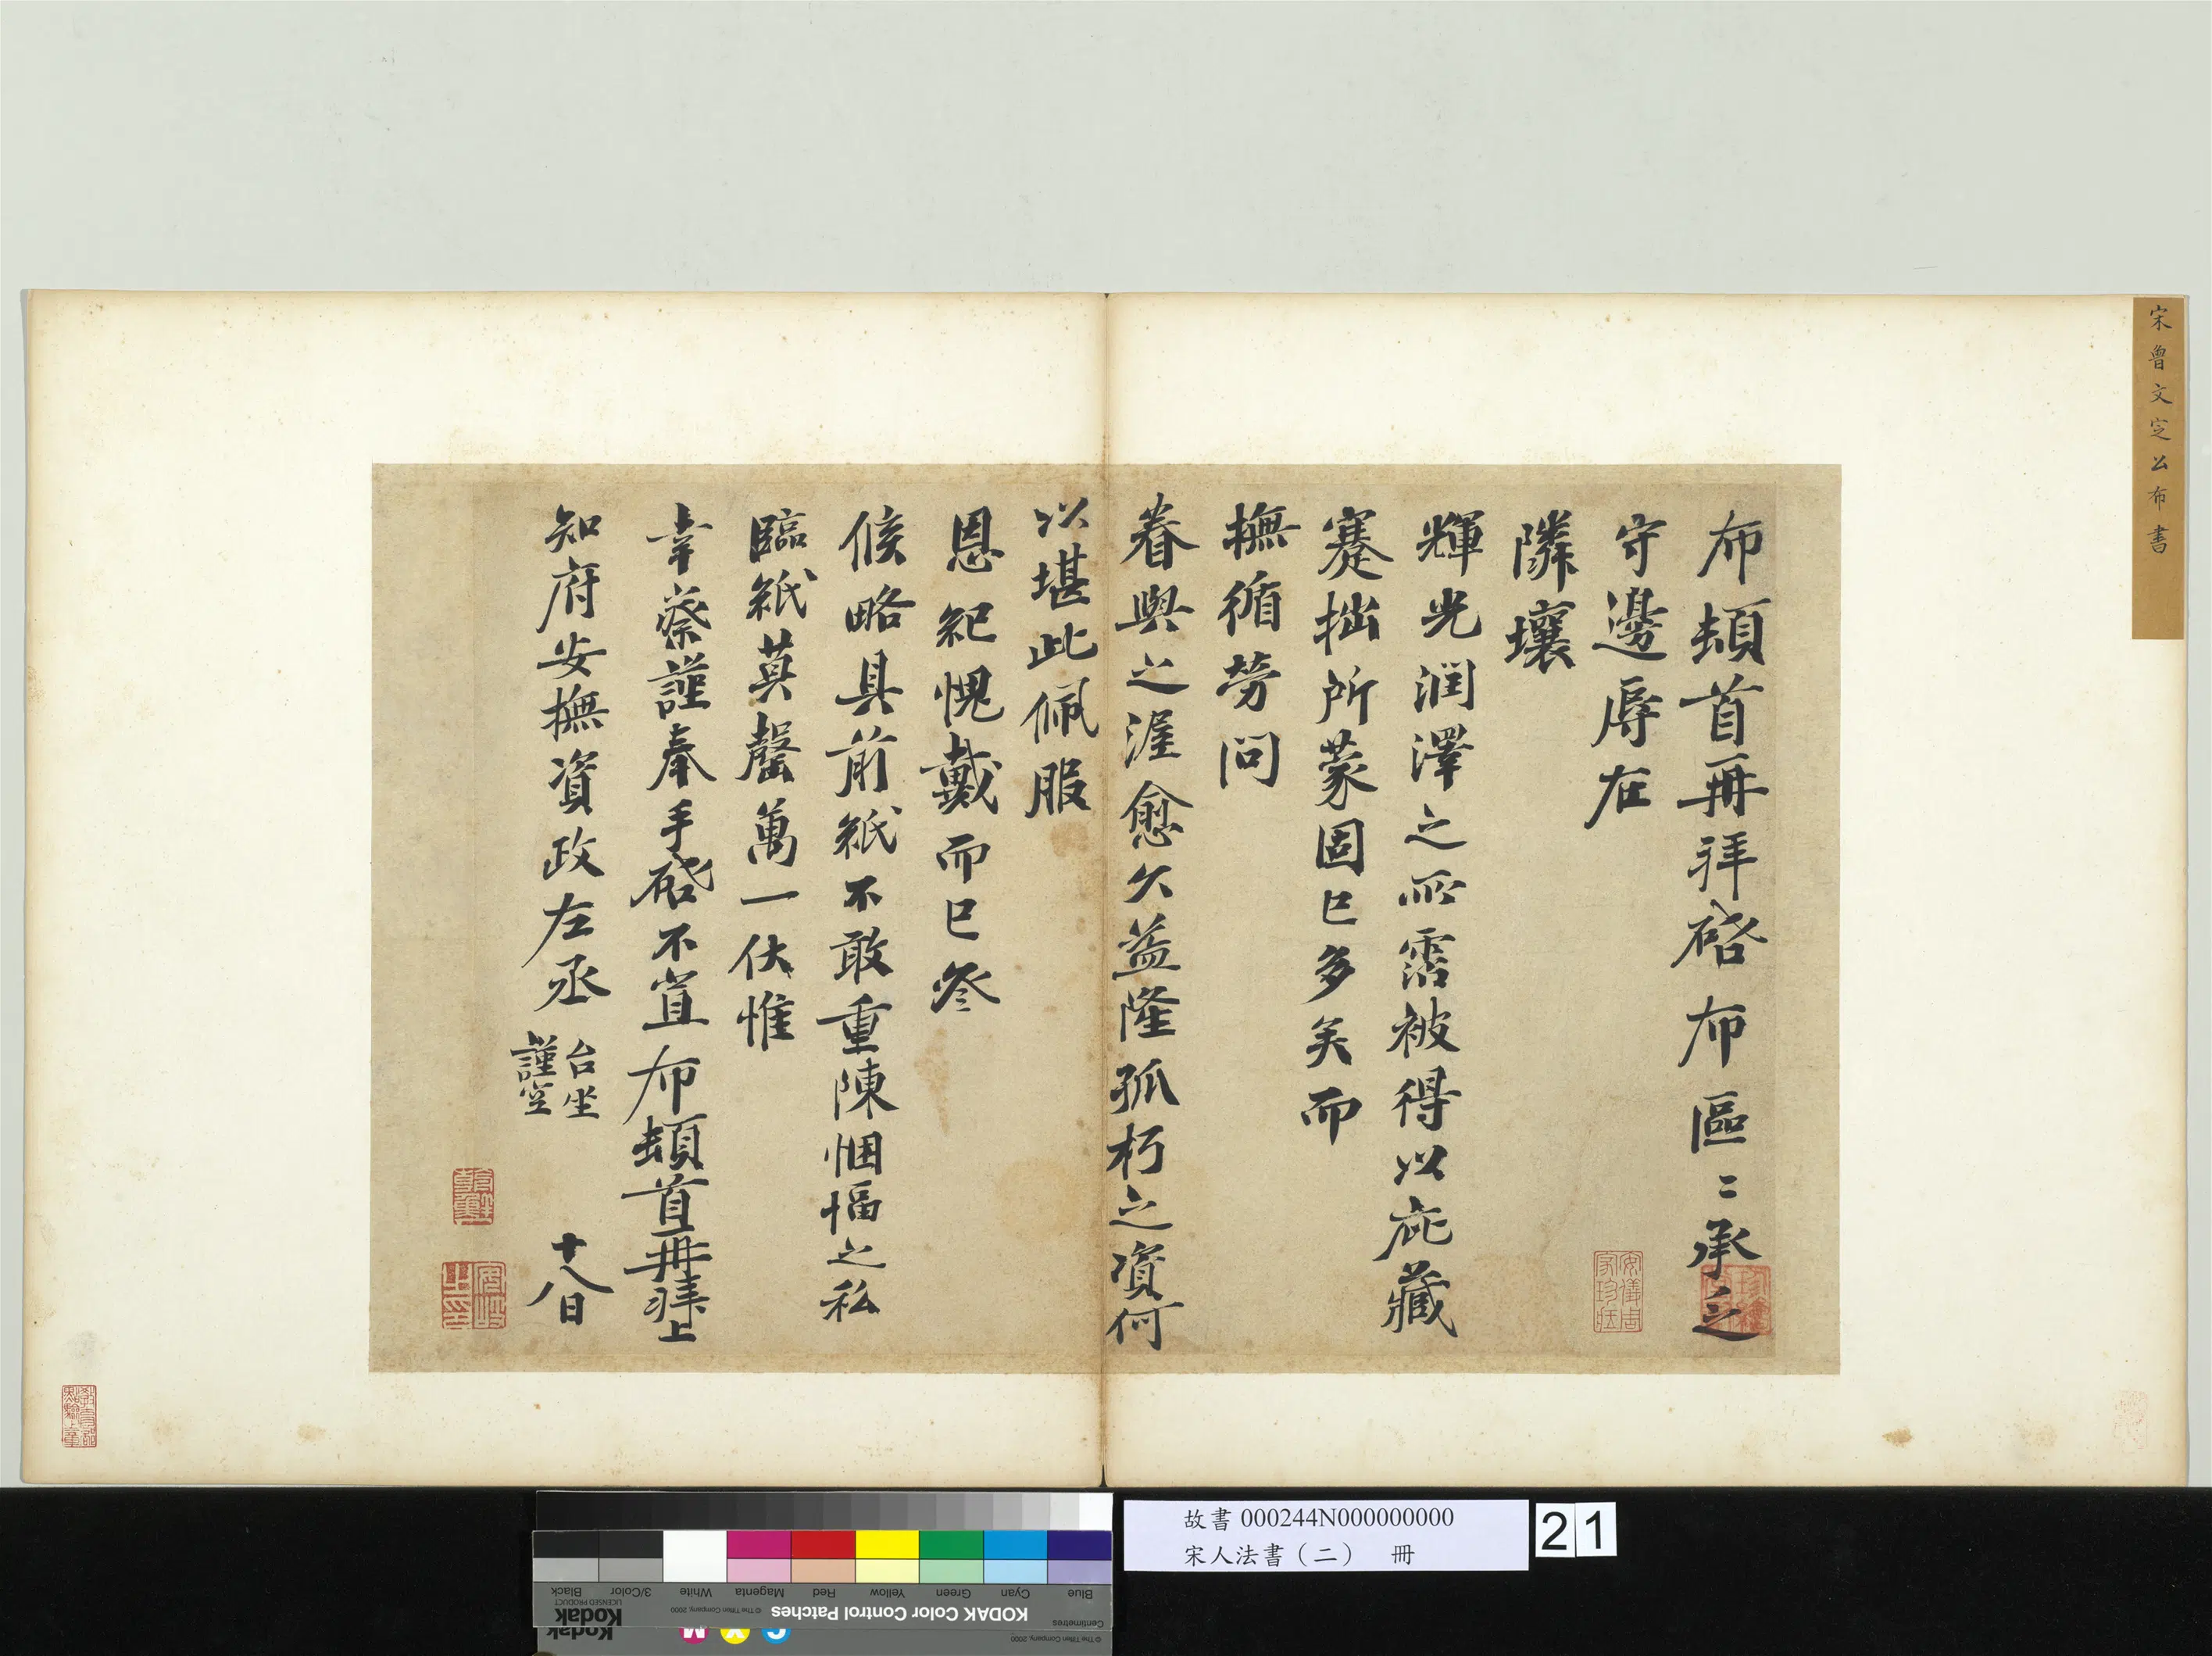 宋曾文定公布書
布頓首再拜啓布區〻承乏
守邊辱在
隣壤
輝光潤澤之所霑被得以庇藏
蹇拙所蒙固已多矣而
撫循勞問
眷與之渥愈久益隆孤朽之資何
以堪此佩服
恩紀愧戴而已參
候略具前紙不敢重陳悃愊之私
臨紙莫罄萬一伏惟
幸察謹奉手啓不宣布頓首再拜上
知府安撫資政左丞
台坐
謹空
十八日
安儀周家珍藏
故書 000244N000000000
宋人法書（二） 冊
21
Blue
Cyan
Green
Yellow
Red
Magenta
White
3/Color
Black
Centimetres
KODAK Color Control Patches
© The Tiffen Company, 2000
Kodak
LICENSED PRODUCT
© The Tiffen Company, 2000
C
Y
M
Kodak